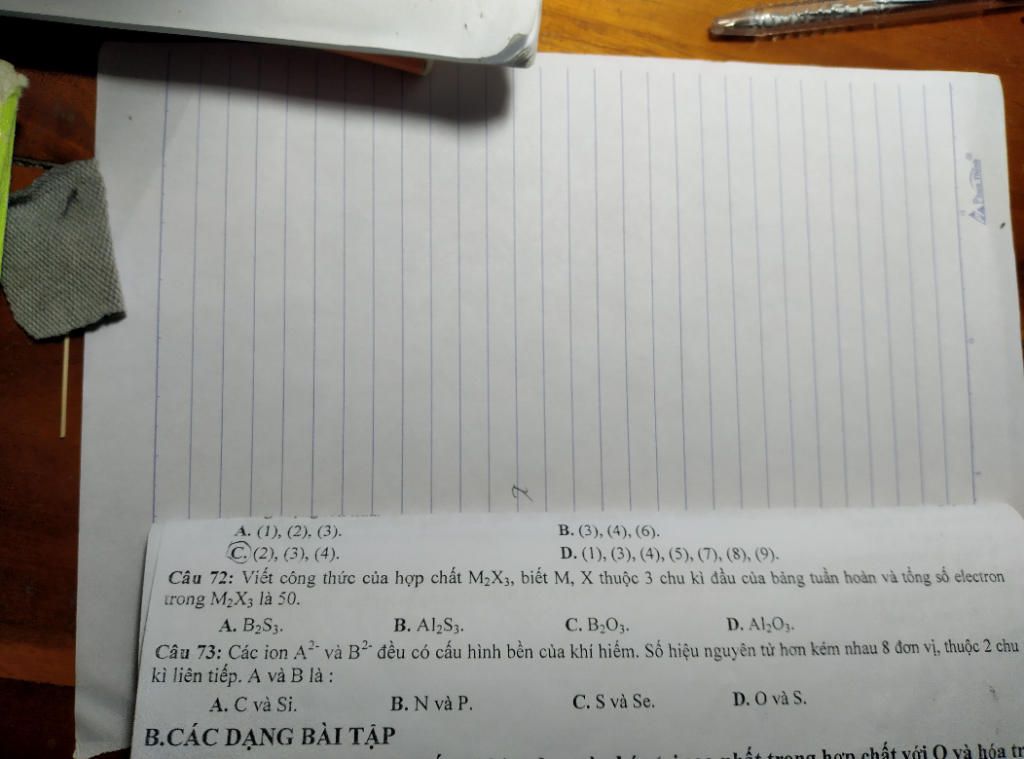 A. (1), (2), (3). B. (3), (4), (6).
C. (2), (3), (4). D. (1), (3), (4), (5), (7), (8), (9).
Câu 72: Viết công thức của hợp chất M₂X₃, biết M, X thuộc 3 chu kì đầu của bảng tuần hoàn và tổng số electron
trong M₂X₃ là 50.
A. B₂S₃. B. Al₂S₃. C. B₂O₃. D. Al₂O₃.
Câu 73: Các ion A²⁻ và B²⁻ đều có cấu hình bền của khí hiếm. Số hiệu nguyên tử hơn kém nhau 8 đơn vị, thuộc 2 chu
kì liên tiếp. A và B là :
A. C và Si. B. N và P. C. S và Se. D. O và S.
B.CÁC DẠNG BÀI TẬP
nhất trong hợp chất với O và hóa tr